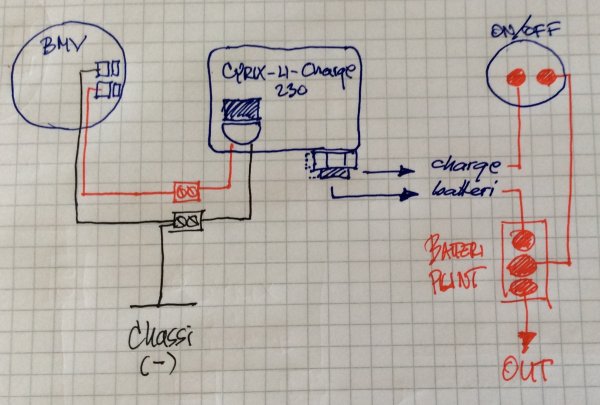 BMV
CYRIX-Li-Charge
230
ON/OFF
charge
batteri
BATTERI
PLINT
OUT
Chassi
(-)